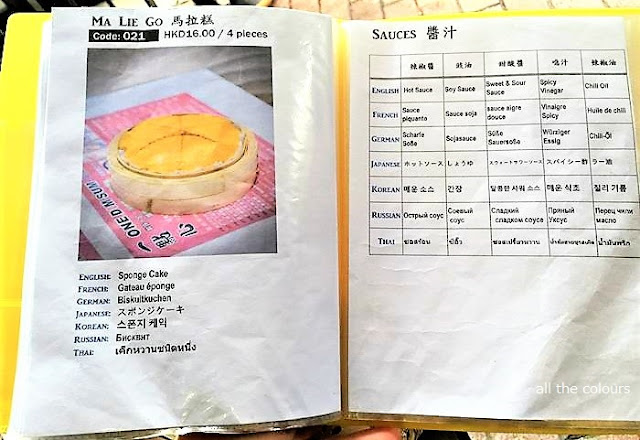 MA LIE GO 馬拉糕
Code: 021 HKD16.00 / 4 pieces
ONE DIM SUM
心
ENGLISH: Sponge Cake
FRENCH: Gateau éponge
GERMAN: Biskuitkuchen
JAPANESE: スポンジケーキ
KOREAN: 스폰지 케익
RUSSIAN: Бисквит
THAI: เค็กหวานชนิดหนึ่ง
SAUCES 醬汁
辣椒醬 豉油 甜酸醬 喼汁 辣椒油
ENGLISH Hot Sauce Soy Sauce Sweet & Sour Sauce Spicy Vinegar Chili Oil
FRENCH Sauce piquanto Sauce soja sauce aigre douce Vinaigre Spicy Huile de chili
GERMAN Scharfe Soße Sojasauce Süße Sauersoße Würziger Essig Chili-Öl
JAPANESE ホットソース しょうゆ スウィートサワーソース スパイシー酢 ラー油
KOREAN 매운 소스 간장 달콤한 사워 소스 매운 식초 칠리 기름
RUSSIAN Острый соус Соевый соус Сладкий сладком соусе Пряный Уксус Перец чили масло
THAI ซอสร้อน ซีอิ๊ว ซอสเปรี้ยวหวาน น้ำมันพริก
all the colours